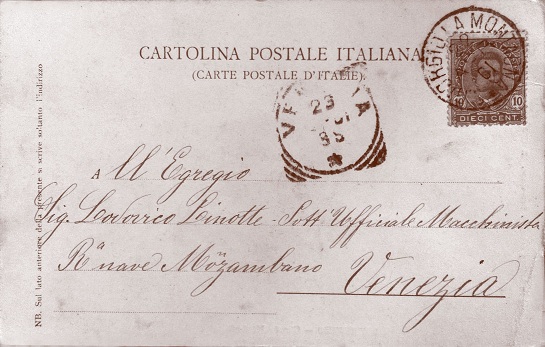 CARTOLINA POSTALE ITALIANA
(CARTE POSTALE D'ITALIE).
10
DIECI CENT.
23
95
A All'Egregio
Sig. Lodovico Linotte - Sott'Ufficiale Macchinista
Rª nave Mozambano
Venezia
NB. Sul lato anteriore della presente si scrive soltanto l'indirizzo